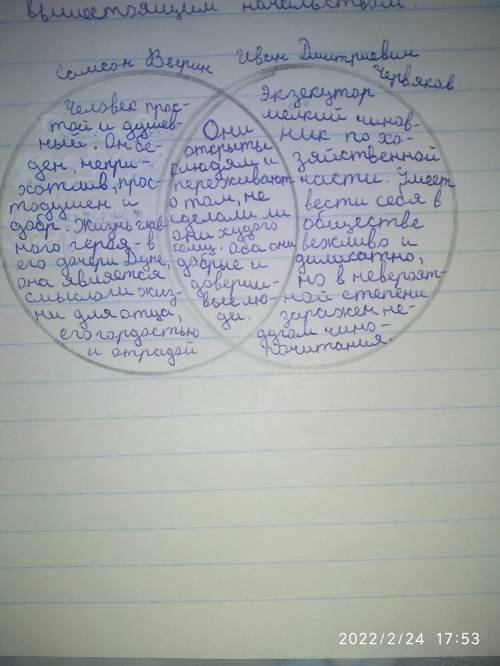 вышестоящим начальством.
Самсон Вырин
Иван Дмитриевич
Червяков
Человек прос-
той и душев-
ный. Он бе-
ден, непри-
хотлив, прос-
тодушен и
добр. Жизнь глав-
ного героя - в
его дочери Дуне,
она является
смыслом жиз-
ни для отца,
его гордостью
и отрадой
Они
открыты
людям и
переживают
о том, не
сделали ли
они худого
кому. Оба они
добрые и
доверчи-
вые лю-
ди.
Экзекутор
мелкий чинов-
ник по хо-
зяйственной
части. Умеет
вести себя в
обществе
вежливо и
диликатно,
но в невероят-
ной степени
заражен не-
дугом чино-
почитания.
2022/2/24 17:53